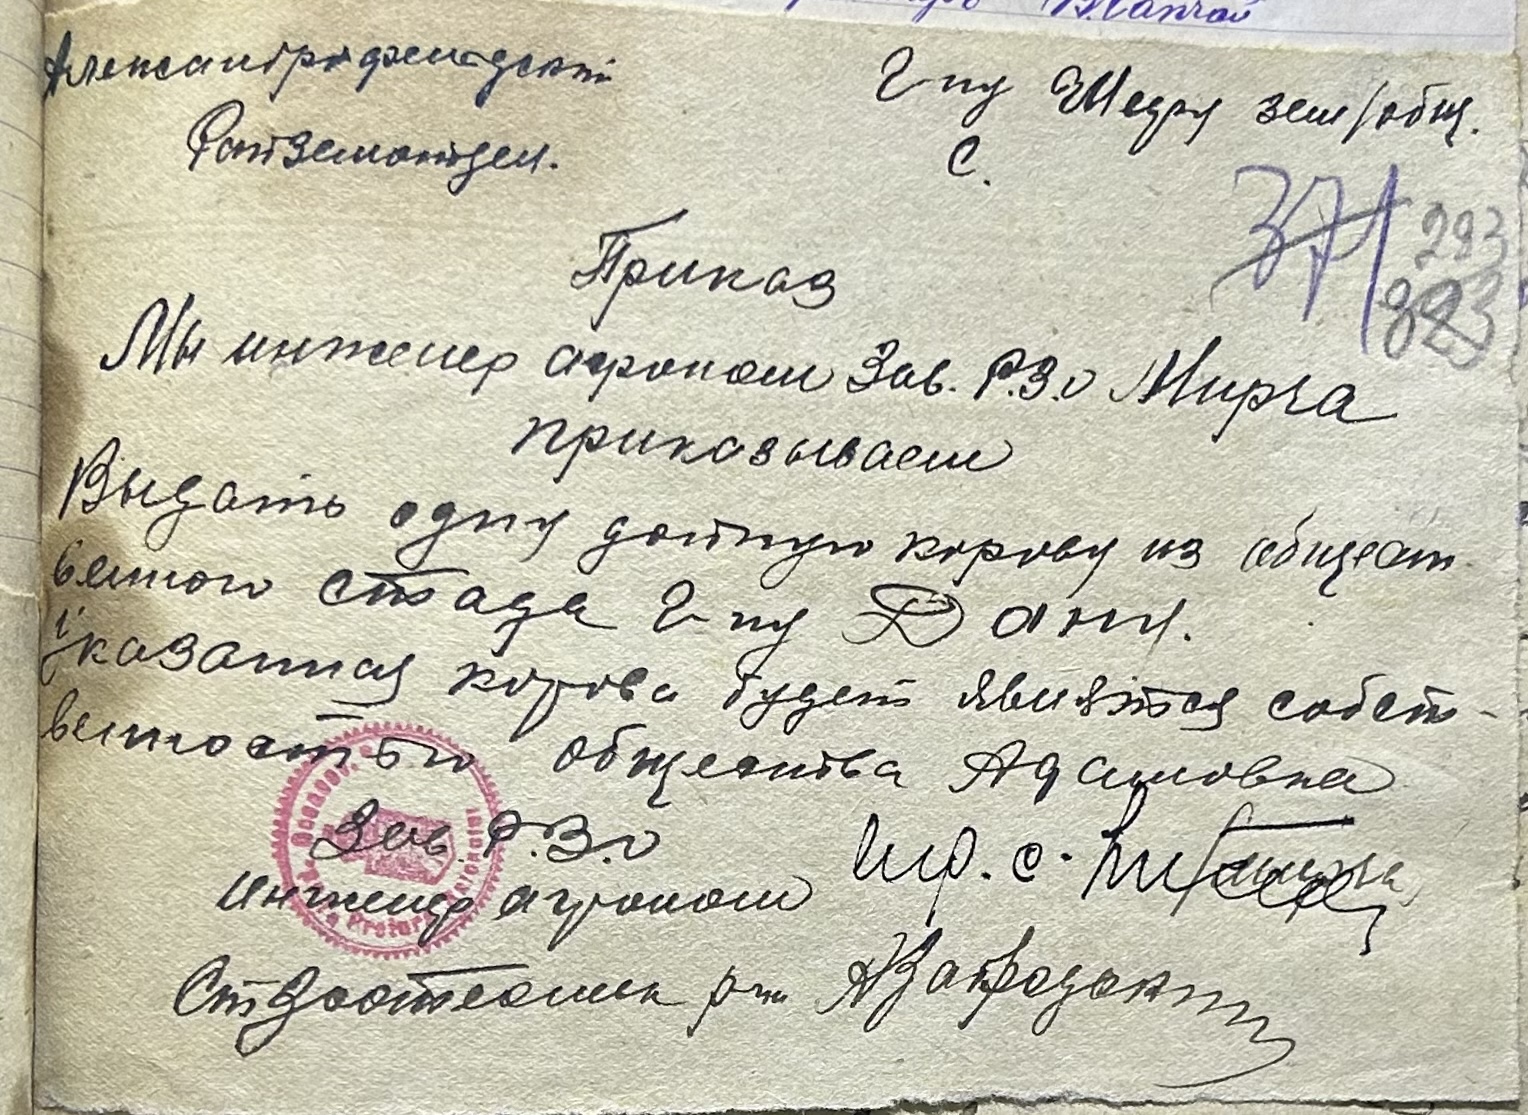 Александрфельдский
Райземотдел.
Г-ну Шефу зем/общ.
С.
371
293
323
Приказ
Мы инженер агроном Зав. Р.З.о Мирча
приказываем
Выдать одну дойную корову из общест
венного стада Г-ну Дану.
Указанная корова будет являтся собст-
венностью общества Адамовка
Зав. Р.З.о
инженер агроном
Ст Зоотехник р-на